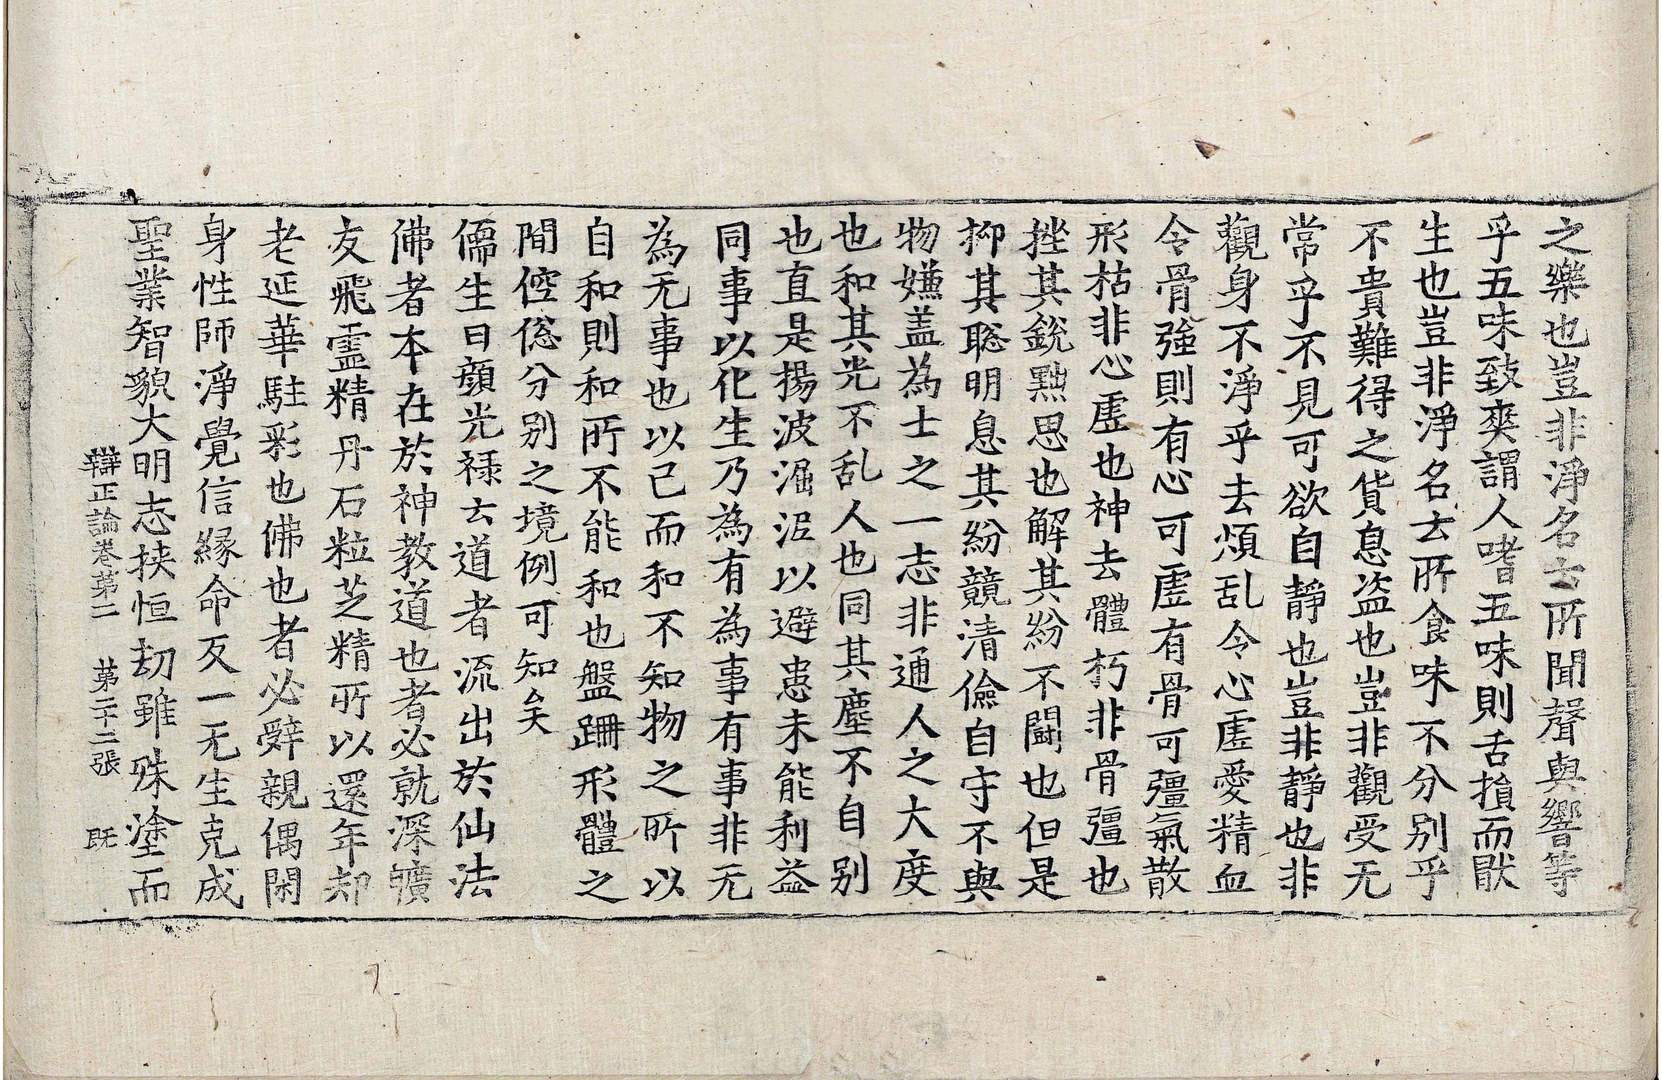 之樂也豈非淨名士所聞聲與響等
乎五味致爽謂人嗜五味則舌損而猒
生也豈非淨名去所食味不分別乎
不貴難得之貨息盜也豈非觀受无
常乎不見可欲自靜也豈非靜也非
觀身不淨乎去煩乱令心虛愛精血
令骨強則有心可虛有骨可彊氣散
形枯非心虛也神去體朽非骨彊也
挫其銳㸃思也解其紛不鬪也但是
抑其聡明息其紛競清儉自守不與
物嫌盖為士之一志非通人之大度
也和其光不乱人也同其塵不自别
也直是揚波淈泥以避患未能利益
同事以化生乃為有為事有事非无
為无事也以己而和不知物之所以
自和則和所不能和也盤跚形體之
間倥傯分别之境例可知矣
儒生曰顔光禄云道者流出於仙法
佛者本在於神教道也者必就深曠
友飛霊精丹石粒芝精所以還年却
老延華駐彩也佛也者必辤親偶閑
身性師淨覺信縁命反一无生克成
聖業智貌大明志挟恒劫雖殊塗而
辯正論卷第二 第二十二張 既